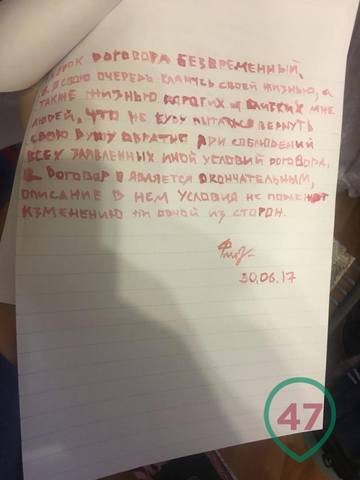 СРОК ДОГОВОРА БЕЗВРЕМЕННЫЙ,
Я В СВОЮ ОЧЕРЕДЬ КЛЯНУСЬ СВОЕЙ ЖИЗНЬЮ, а
ТАКЖЕ ЖИЗНЬЮ ДОРОГИХ И БЛИЗКИХ МНЕ
ЛЮДЕЙ, ЧТО НЕ БУДУ ПЫТАТЬСЯ ВЕРНУТЬ
СВОЮ ДУШУ ОБРАТНО ПРИ СОБЛЮДЕНИИ
ВСЕХ ЗАЯВЛЕННЫХ МНОЙ УСЛОВИЙ ДОГОВОРА.
ДОГОВОР ЯВЛЯЕТСЯ ОКОНЧАТЕЛЬНЫМ,
ОПИСАНИЕ В НЕМ УСЛОВИЯ НЕ ПОДЛЕЖАТ
ИЗМЕНЕНИЮ НИ ОДНОЙ ИЗ СТОРОН.
30.06.17
47